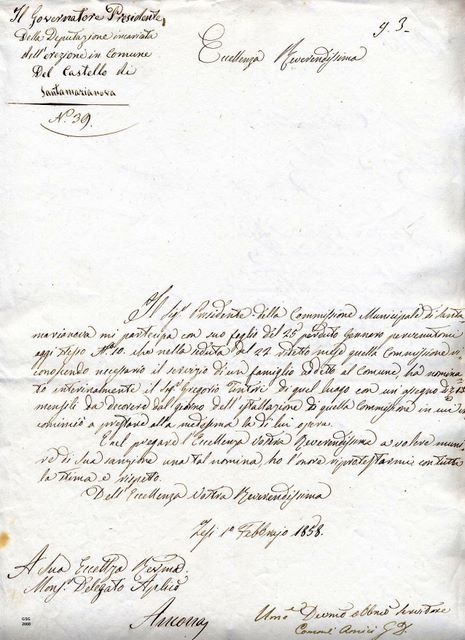 Il Governatore Presidente
Della Deputazione incaricata
dell'erezione in Comune
Del Castello di
Santamarianova
N.° 39.
Eccellenza Reverendissima
Il Sig. Presidente della Commissione Municipale di Santa
marianova mi partecipa con suo foglio del 25 perduto Gennaro pervenutomi
oggi stesso N.° 10. che nella seduta del 22 detto mese quella Commissione
conoscendo necessario il servizio di un famiglio addetto al Comune, ha nomina
to interinalmente il Sig. Gregorio di quel luogo con un assegno di
mensili da decorere dal giorno dell'istallazione di quella Commissione in cui
cominciò a prestare alla medesima la di lui opera.
E nel pregare l'Eccellenza Vostra Reverendissima a volere muni
re di sua sanzione una tal nomina, ho l'onore riprotestarmi con tutta
la stima e rispetto.
Dell'Eccellenza Vostra Reverendissima
Jesi 1° Febbrajo 1858.
A Sua Eccellza Revma
Mons. Delegato Aplico
Ancona
Umo Devmo obbmo Servitore
GSG
2008